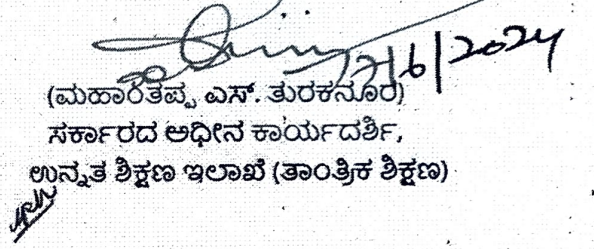 17/6/2024
(ಮಹಾಂತಪ್ಪ ಎಸ್. ತುರಕನೂರ)
ಸರ್ಕಾರದ ಅಧೀನ ಕಾರ್ಯದರ್ಶಿ,
ಉನ್ನತ ಶಿಕ್ಷಣ ಇಲಾಖೆ (ತಾಂತ್ರಿಕ ಶಿಕ್ಷಣ)